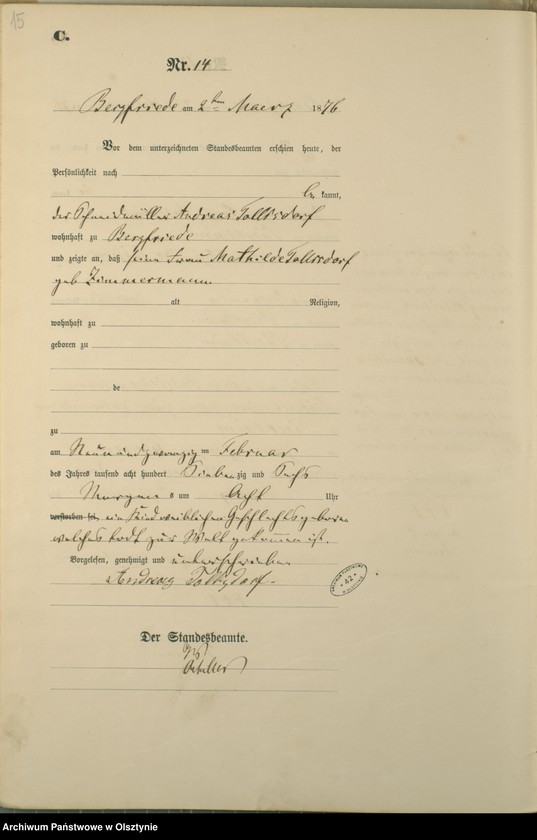 15
C.
Nr. 14
Bergfriede am 2ten Maerz 1876
Vor dem unterzeichneten Standesbeamten erschien heute, der
Persönlichkeit nach
be kannt,
der Schneidmüller Andreas Tolksdorf
wohnhaft zu Bergfriede
und zeigte an, daß seine Frau Mathilde Tolksdorf
geb Zimmermann
alt Religion,
wohnhaft zu
geboren zu
de
zu
am Neunundzwanzig ten Februar
des Jahres tausend acht hundert Siebenzig und Sechs
Morgens um Acht Uhr
verstorben sei, ein Kind weiblichen Geschlechts geboren
welches todt zur Welt gekommen ist.
Vorgelesen, genehmigt und unterschrieben
Andreas Tolksdorf
42
Der Standesbeamte.
Archiwum Państwowe w Olsztynie